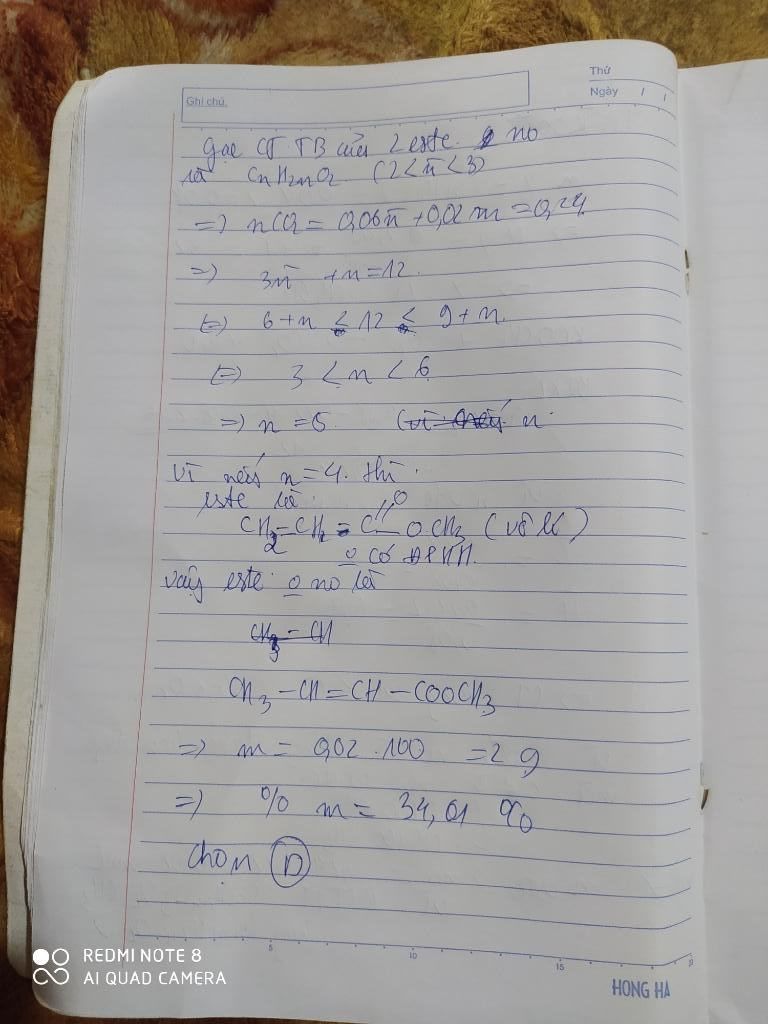 Thứ
Ghi chú.
Ngày / /
gọi CT TB của 2 este no
là CnH2nO2 (2 < n̄ < 3)
=) nCO2 = 0,06n̄ + 0,02 m = 0,24
=) 3n̄ + n = 12
(=) 6 + n ≤ 12 ≤ 9 + n
(=) 3 < n < 6
=) n = 5 (vì nếu n
Vì nếu n = 4 thì
este là
CH2 = CH2 = C // O - OCH3 (vô lí)
o có ĐPHH.
vậy este o no là
CH3 - CH
CH3 - CH = CH - COOCH3
=) m = 0,02 . 100 = 2 g
=) % m = 34,01 %
chọn D
5 10 15
REDMI NOTE 8
AI QUAD CAMERA
HONG HA